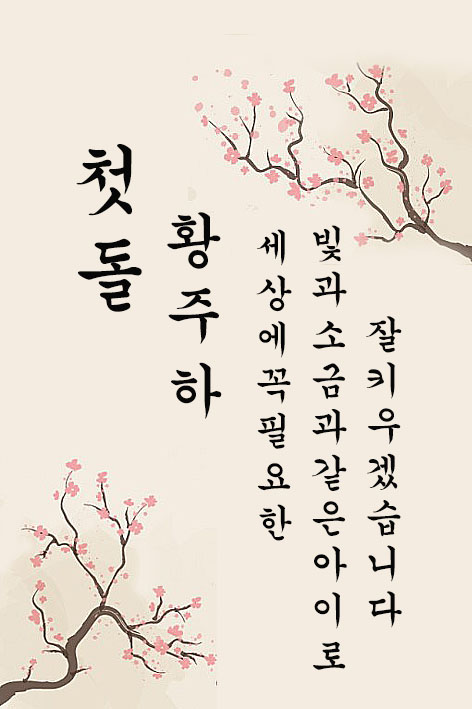 첫돌
황주하
세상에꼭필요한
빛과소금과같은아이로
잘키우겠습니다